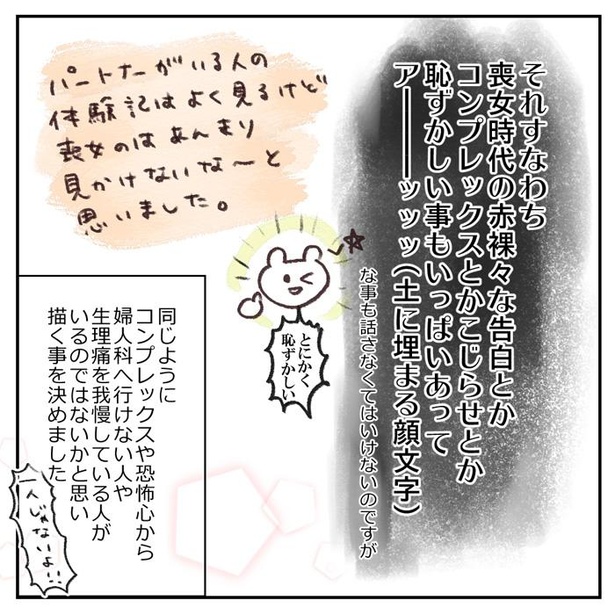 それすなわち
喪女時代の赤裸々な告白とか
コンプレックスとかこじらせとか
恥ずかしい事もいっぱいあって
アーーーッッッ(土に埋まる顔文字)
な事も話さなくてはいけないのですが
とにかく
恥ずかしい
パートナーがいる人の
体験記はよく見るけど
喪女のはあんまり
見かけないな〜と
思いました。
同じように
コンプレックスや恐怖心から
婦人科へ行けない人や
生理痛を我慢している人が
いるのではないかと思い
描く事を決めました
一人じゃないよ!!